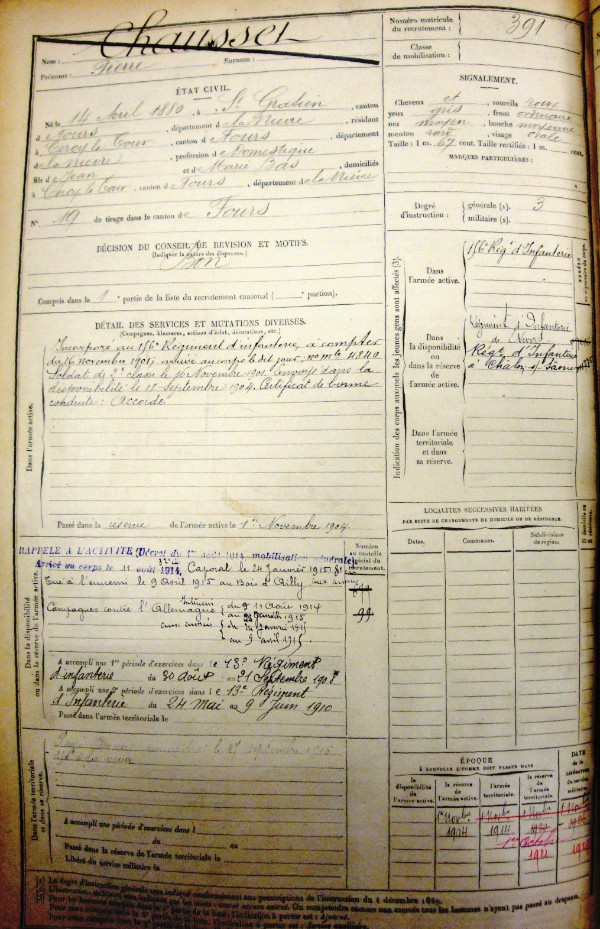 Chausset
Nom :
Prénoms : Pierre Surnom :
ÉTAT CIVIL.
Né le 14 Avril 1880, à St Gratien, canton
de Fours, département de la Nièvre, résidant
à Cercy la Tour, canton de Fours, département
de la Nièvre, profession de Domestique
fils de Jean et de Marie Bas, domiciliés
à Cercy la Tour, canton de Fours, département de la Nièvre
N° 19 de tirage dans le canton de Fours
DÉCISION DU CONSEIL DE REVISION ET MOTIFS.
(Indiquer la nature des dispenses.)
Bon
Compris dans la 1e partie de la liste du recrutement cantonal ( portion).
DÉTAIL DES SERVICES ET MUTATIONS DIVERSES.
(Campagnes, blessures, actions d'éclat, décorations, etc.)
Dans l'armée active.
Incorporé au 156e Régiment d'infanterie, à compter
du 16 novembre 1901, arrivé au corps le dit jour, no mle 4849
Soldat de 2e classe le 16 Novembre 1901. Envoyé dans la
disponibilité le 18 Septembre 1904. Certificat de bonne
conduite : Accordé
Passé dans la réserve de l'armée active le 1er Novembre 1904
Dans la disponibilité
ou dans la réserve de l'armée active.
RAPPELÉ A L'ACTIVITÉ (Décret du 1er août 1914, mobilisation générale)
Arrivé au corps le 11 août 1914, Caporal le 24 janvier 1915
Tué à l'ennemi le 9 Avril 1915 au Bois d'Ailly
Campagnes contre l'Allemagne Intérieur du 11 Août 1914
aux armées
au 9 avril 1915
Numéro
au contrôle
spécial du
recrutement.
99
A accompli une 1re période d'exercices dans le 13e Régiment
d'infanterie du 30 Août au 21 Septembre 1908
A accompli une 2e période d'exercices dans le 13e Régiment
d'Infanterie du 24 Mai au 9 Juin 1910
Passé dans l'armée territoriale le
Dans l'armée territoriale
et dans sa réserve.
A accompli une période d'exercices dans l
du au
Passé dans la réserve de l'armée territoriale le
Libéré du service militaire le
Numéro matricule
du recrutement : 391
Classe
de mobilisation :
SIGNALEMENT.
Cheveux et sourcils roux
yeux gris, front ordinaire
nez moyen, bouche moyenne
menton rond, visage ovale
Taille : 1 m. 67 cent. Taille rectifiée : 1 m. cent.
MARQUES PARTICULIÈRES :
Degré
d'instruction :
générale (1). 3
militaire (2).
Indication des corps auxquels les jeunes gens sont affectés (3).
Dans
l'armée active.
156e Régt d'Infanterie
Dans
la disponibilité
ou dans la réserve
de
l'armée active.
Régiment d'Infanterie
Régt d'Infanterie
à Chalon s/ Saône
Dans l'armée
territoriale
et dans
sa réserve.
LOCALITÉS SUCCESSIVES HABITÉES
PAR SUITE DE CHANGEMENTS DE DOMICILE OU DE RÉSIDENCE.
Dates. Communes. Subdivisions
de région.
ÉPOQUE
À LAQUELLE L'HOMME DOIT PASSER DANS
la
disponibilité
de
l'armée active.
la réserve
de
l'armée active.
l'armée
territoriale.
la réserve
de l'armée
territoriale.
DATE
de la
LIBÉRATION
du service
militaire.
1er Novbre
1904
1914
1er octobre
1921
(1) Le degré d'instruction générale sera indiqué conformément aux prescriptions de l'instruction du 4 décembre 1889.